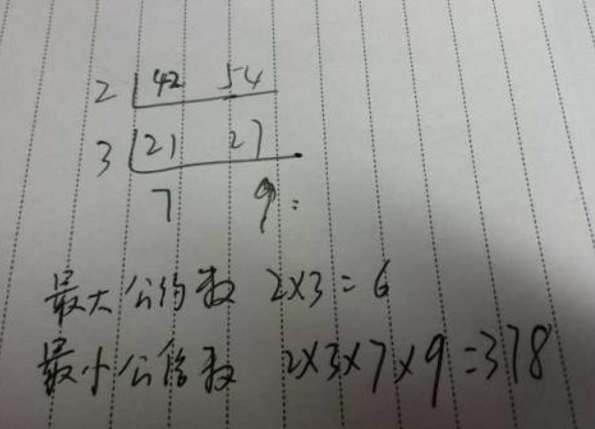 2 42 54
3 21 27
7 9
最大公约数 2×3=6
最小公倍数 2×3×7×9=378